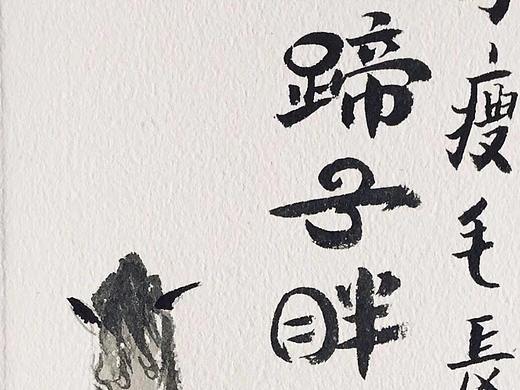 瘦毛長
蹄子胖